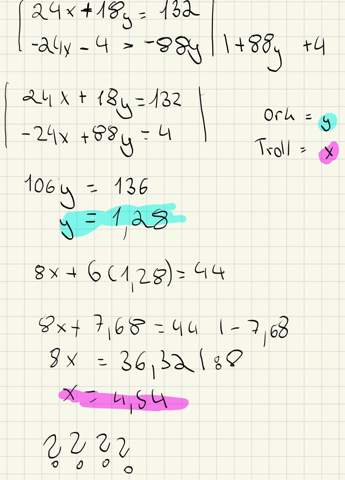 24x+18y = 132
-24x-4 = -88y | +88y +4
24x + 18y = 132
-24x+88y = 4
Ork = y
Troll = x
106y = 136
y = 1,28
8x + 6(1,28) = 44
8x + 7,68 = 44 | - 7,68
8x = 36,32 | :8
x = 4,54
????